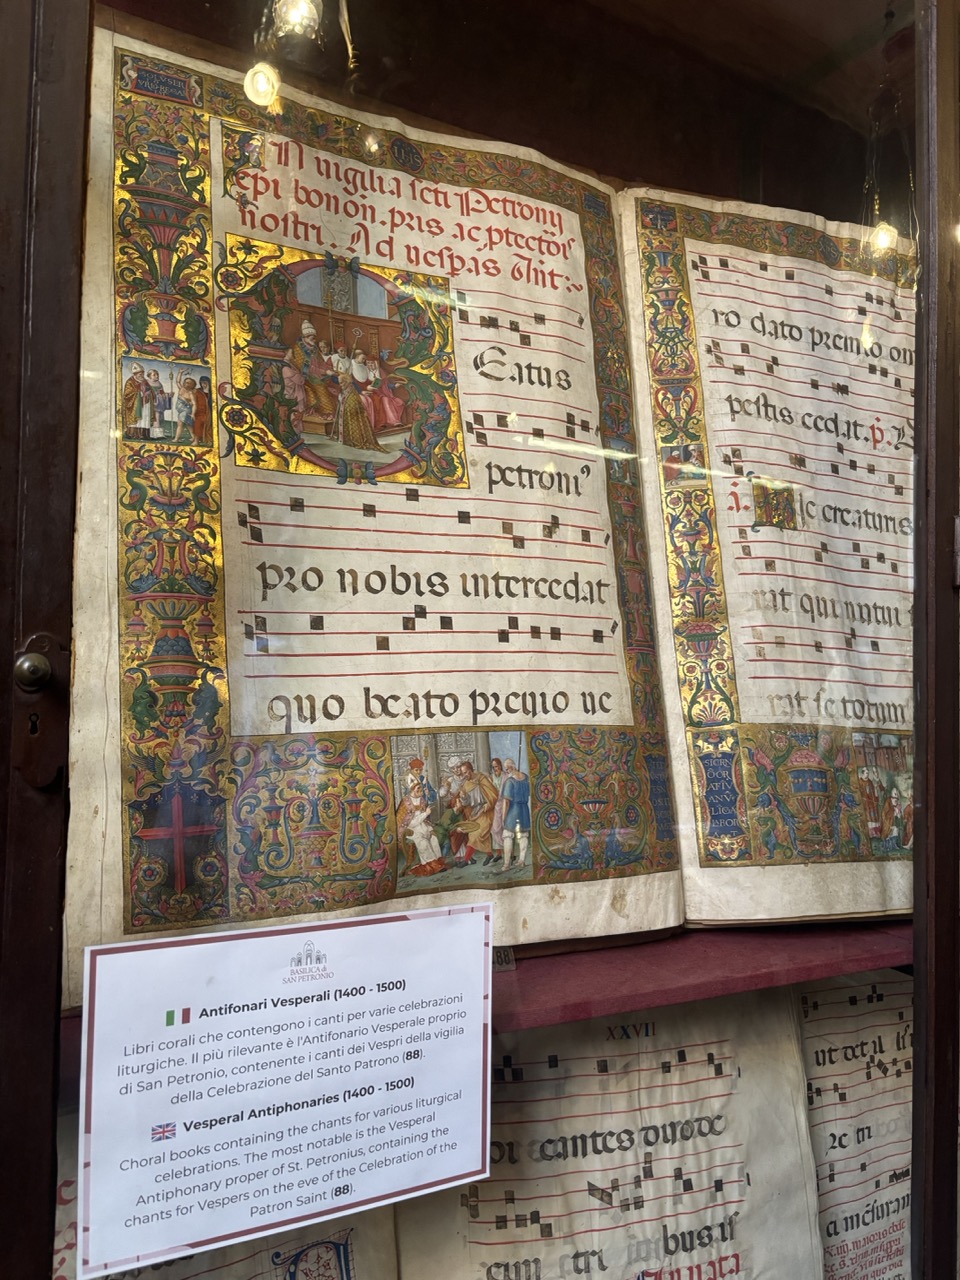 SOLVS ER
IHS
In uigilia scti Petronij
epi bonoñ. pris ac ptectoris
nostri. Ad uespas Añt:~
Eatus
petroni⁹
pro nobis intercedat
quo beato premio ue
ro dato premio om
pestis cedat. p.
ic creaturis
rat qui nutui
rat se totum
88
BASILICA di
SAN PETRONIO
Antifonari Vesperali (1400 - 1500)
Libri corali che contengono i canti per varie celebrazioni
liturgiche. Il più rilevante è l'Antifonario Vesperale proprio
di San Petronio, contenente i canti dei Vespri della vigilia
della Celebrazione del Santo Patrono (88).
Vesperal Antiphonaries (1400 - 1500)
Choral books containing the chants for various liturgical
celebrations. The most notable is the Vesperal
Antiphonary proper of St. Petronius, containing the
chants for Vespers on the eve of the Celebration of the
Patron Saint (88).
XXVII
cantes
tri bus